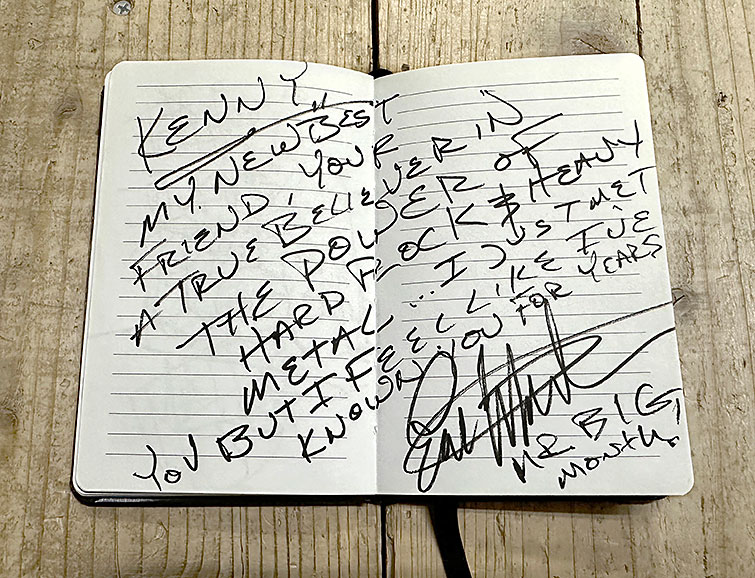 KENNY,,
MY NEW BEST
FRIEND, YOUR
A TRUE BELIEVER IN
THE POWER OF
HARD ROCK & HEAVY
METAL... I JUST MET
YOU BUT I FEEL LIKE I'VE
KNOWN YOU FOR YEARS
MR BIG,
MOUTH!